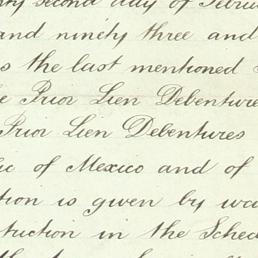 ty second day of Febru
and ninety three and
s the last mentioned
e Prior Lien Debenture
Prior Lien Debentures
lic of Mexico and of
tion is given by wa
truction in the Sched